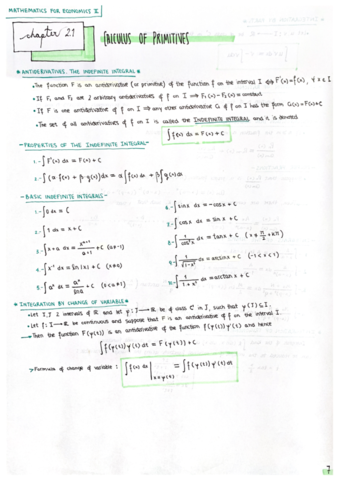 MATHEMATICS FOR ECONOMICS II
chapter 21
CALCULUS OF PRIMITIVES
* ANTIDERIVATIVES. THE INDEFINITE INTEGRAL *
• The function F is an antiderivative (or primitive) of the function f on the interval I ⟺ F'(x)=f(x), ∀ x ∈ I.
• If F₁ and F₂ are 2 arbitrary antiderivatives of f on I ⟹ F₁(x) - F₂(x) = constant
• If F is one antiderivative of f on I ⟹ any other antiderivative G of f on I has the form G(x) = F(x)+C
• The set of all antiderivatives of f on I is called the INDEFINITE INTEGRAL and it is denoted
∫f(x) dx = F(x) + C
- PROPERTIES OF THE INDEFINITE INTEGRAL -
1.- ∫F'(x) dx = F(x) + C
2.- ∫(α f(x) + β g(x)) dx = α ∫f(x) dx + β ∫g(x) dx
- BASIC INDEFINITE INTEGRALS -
1.- ∫0 dx = C
2.- ∫1 dx = x + C
3.- ∫xᵃ dx = xᵃ⁺¹/a+1 + C (a≠-1)
4.- ∫x⁻¹ dx = ln|x| + C (x≠0)
5.- ∫aˣ dx = aˣ/ln a + C (0<a≠1)
6.- ∫sin x dx = -cos x + C
7.- ∫cos x dx = sin x + C
8.- ∫1/cos²x dx = tan x + C (x ≠ π/2 + kπ)
9.- ∫1/√1-x² dx = arcsin x + C (-1 < x < 1)
10.- ∫1/1+x² dx = arctan x + C
* INTEGRATION BY CHANGE OF VARIABLE *
• Let I, J 2 intervals of ℝ and let φ: J → ℝ be of class C¹ in J, such that φ(J) ⊆ I.
• Let f: I → ℝ be continuous and suppose that F is an antiderivative of f on the interval I.
→ Then the function F(φ(t)) is an antiderivative of the function f(φ(t)) φ'(t) and hence
∫f(φ(t)) φ'(t) dt = F(φ(t)) + C
→ Formula of change of variable : ∫f(x) dx |x=φ(t) = ∫f(φ(t)) φ'(t) dt
7